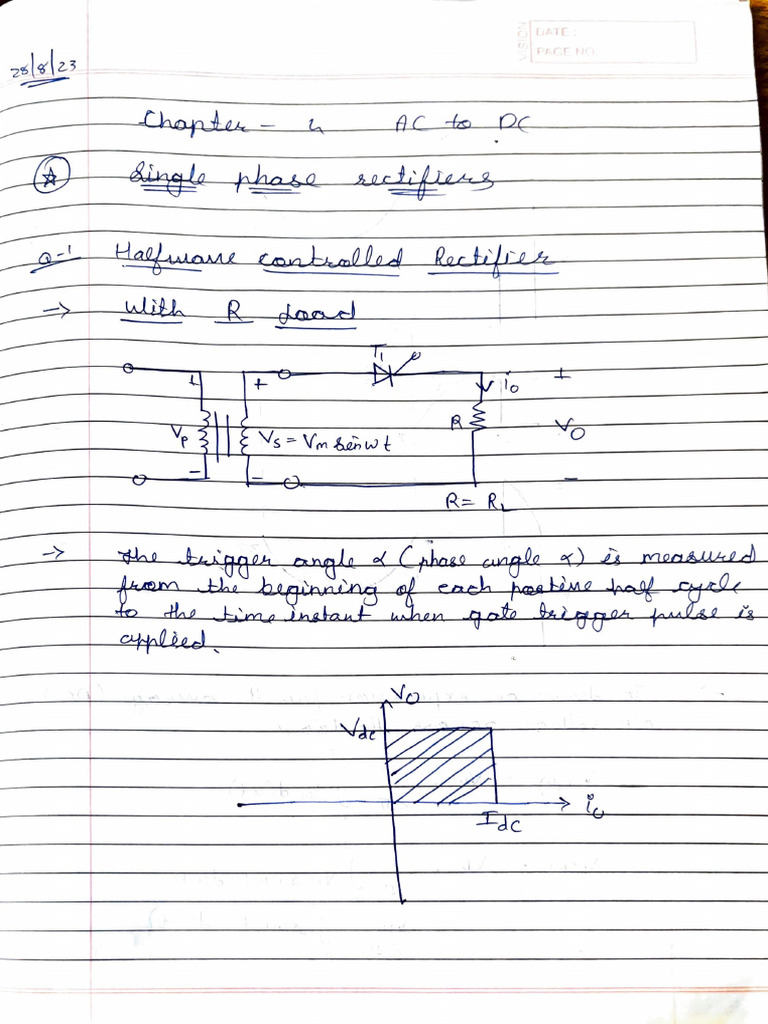 VISION
DATE:
PAGE NO:
28/8/23
Chapter - 4 AC to DC
Single phase rectifiers
Q-1 Halfwave controlled Rectifier
→ With R Load
T1
+ + i0 +
Vp Vs = Vm sin wt R V0
- - -
R = RL
→ The trigger angle α (phase angle α) is measured
from the beginning of each postive half cycle
to the time instant when gate trigger pulse is
applied.
V0
Vdc
i0
Idc